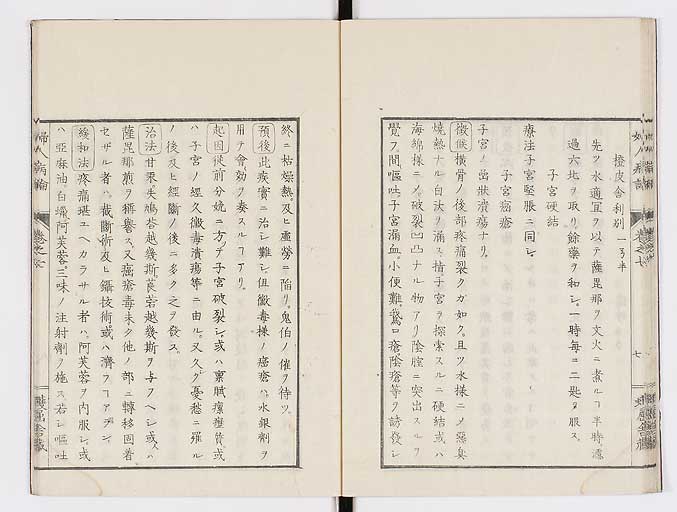 橙皮舎利別 一弓半
先ツ水適宜ヲ以テ薩毘那ヲ文火ニ煮ルヿ半時濾
過六比ヲ取リ餘藥ヲ和シ一時毎ニ二匙ヲ服ス
子宮硬結
療法子宮堅脹ニ同シ
子宮癌瘡
子宮ノ凸狀潰瘍ナリ
徴候横骨ノ後部疼痛裂クガ如ク且ツ水様ニノ惡臭
燒熱ナル白汝ヲ漏ス指子宮ヲ探索スルニ硬結或ハ
海綿様ニノ破裂凹凸ナル物アリ陰腟ニ突出スルヲ
覺フ間嘔吐子宮漏血小便難鵞口瘡陰瘡等ヲ誘發シ
終ニ枯燥熱及ヒ虚勞ニ陥リ鬼伯ノ催ヲ待ツ
預後此疾實ニ治シ難シ但黴毒様ノ癌瘡ハ水銀劑ヲ
用テ會効ヲ奏スルヿアリ
起因從前分娩ニ方テ子宮破裂シ或ハ稟賦瘰癧質或
ハ子宮ノ經久黴毒潰瘍等ニ由ル又久ク憂愁ニ罹ル
ノ後及ヒ經斷ノ後ニ多ク之ヲ發ス
治法甘汞失鳩荅越幾斯莨若越幾斯ヲ与ヘシ或ハ
薩毘那煎ヲ稱譽ス又癌瘡毒未タ他ノ部ニ轉移固着
セザル者ハ截斷術及ヒ鑷技術或ハ濟フヿアラン
緩和法疼痛堪ユヘカラサル者ハ阿芙蓉ヲ内服シ或
ハ亞麻油白蠟阿芙蓉三味ノ注射劑ヲ施ス若シ嘔吐
婦人病論
卷之七
七